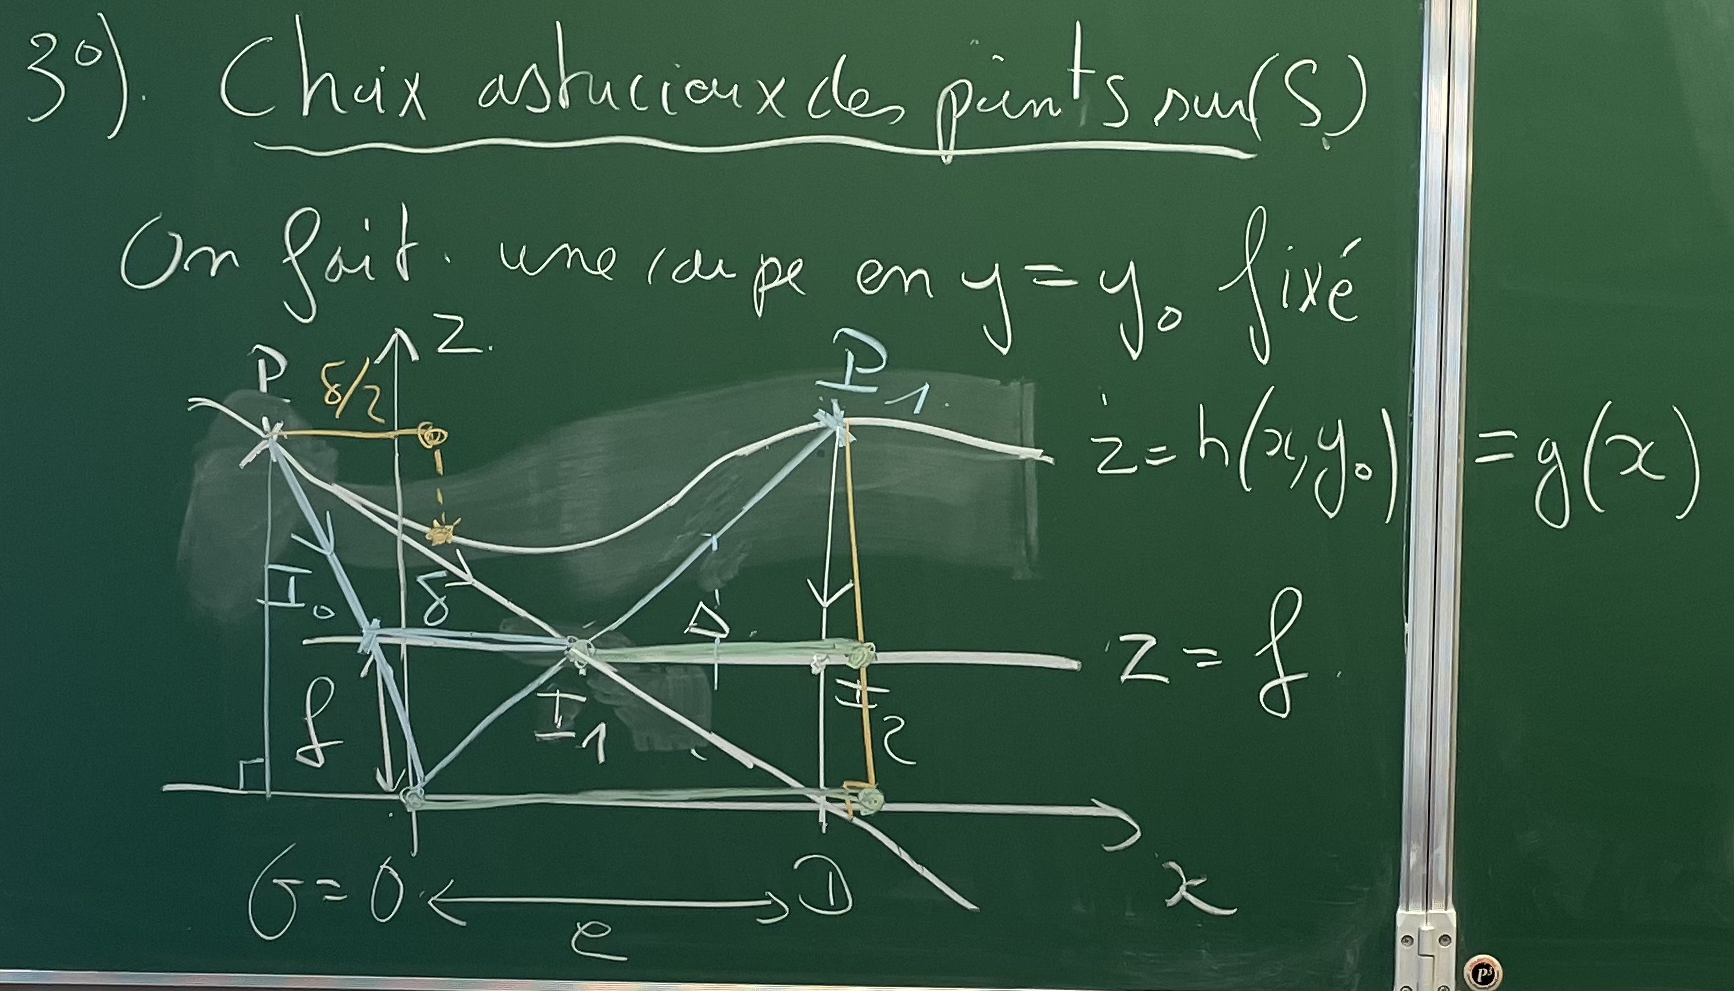 3°). Choix astucieux des points sur (S)
On fait une coupe en y = y₀ fixé
z
P
δ/2
P₁
z = h(x, y₀) = g(x)
I₀
δ
Δ
z = f
f
I₁
I₂
G = O
e
D
x
P³